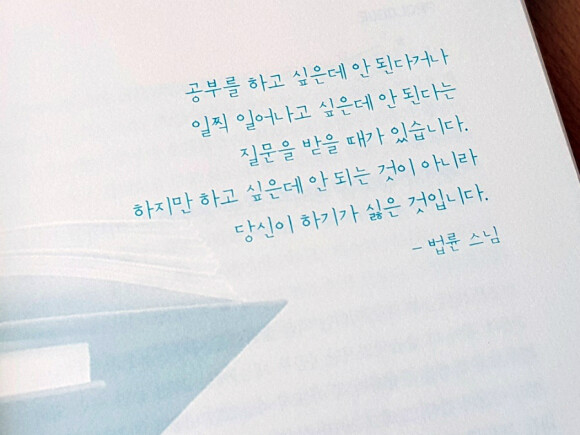 공부를 하고 싶은데 안 된다거나
일찍 일어나고 싶은데 안 된다는
질문을 받을 때가 있습니다.
하지만 하고 싶은데 안 되는 것이 아니라
당신이 하기가 싫은 것입니다.
– 법륜 스님